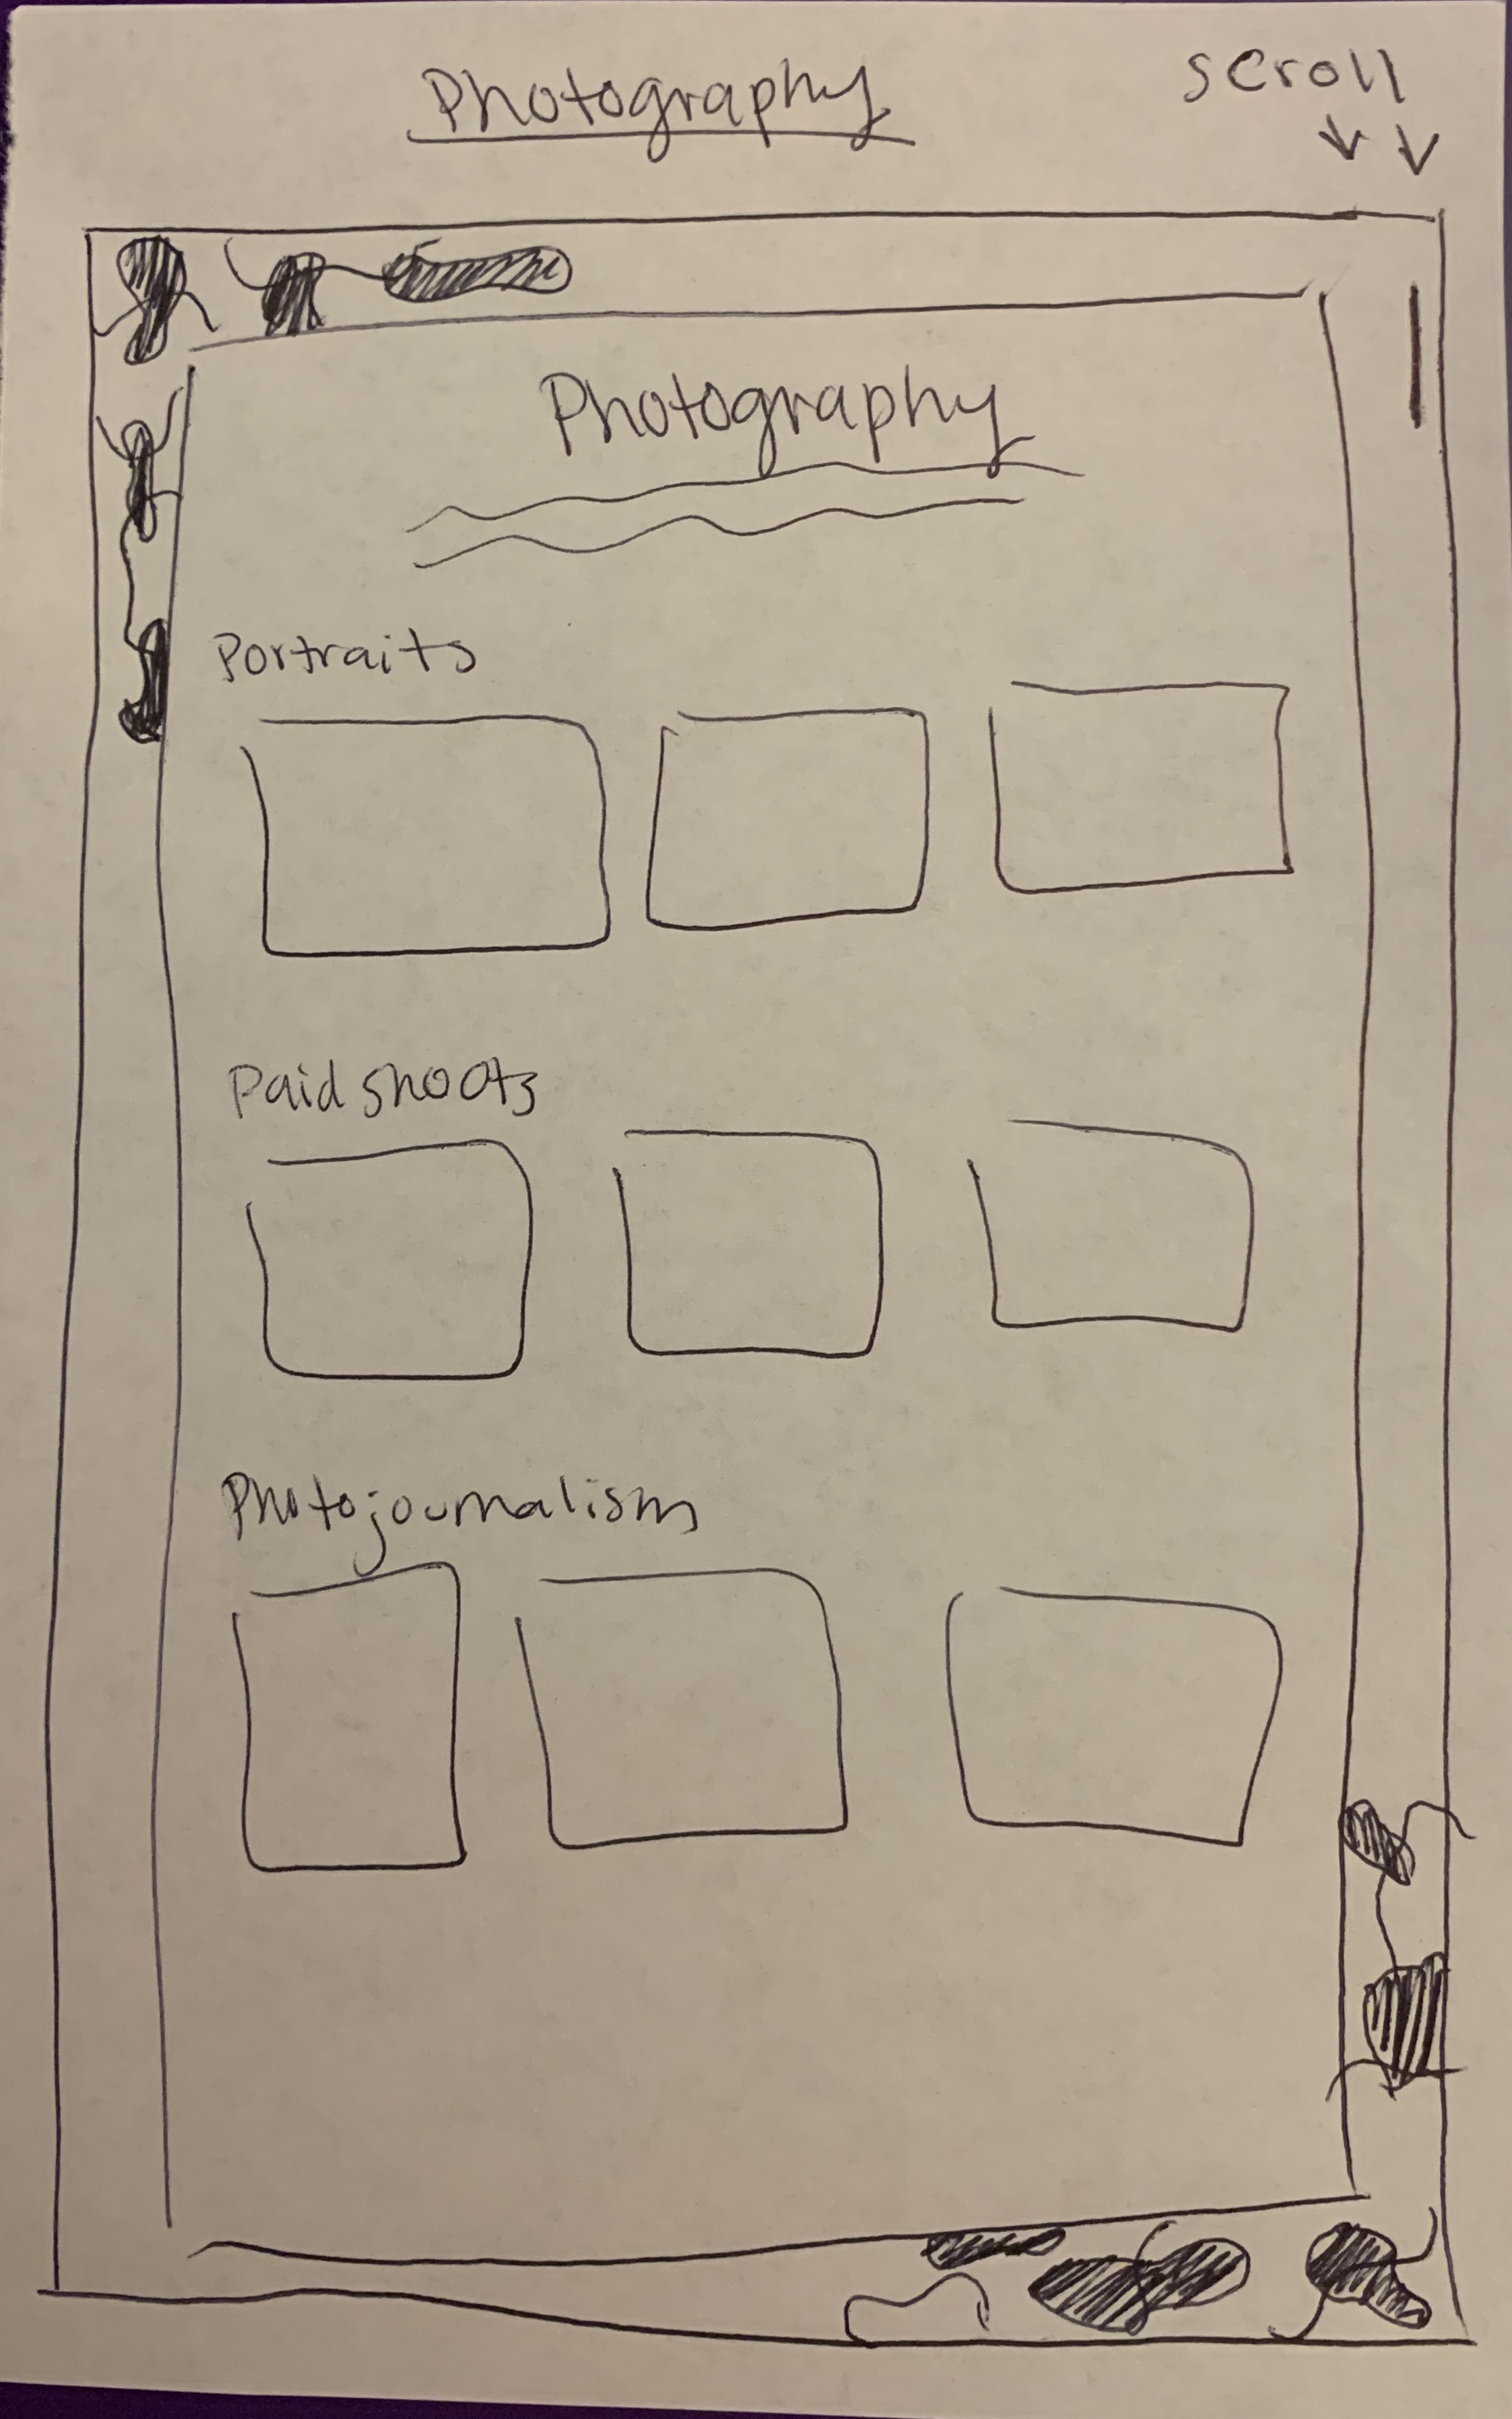 Photography
scroll
Photography
Portraits
Paid shoots
Photojournalism